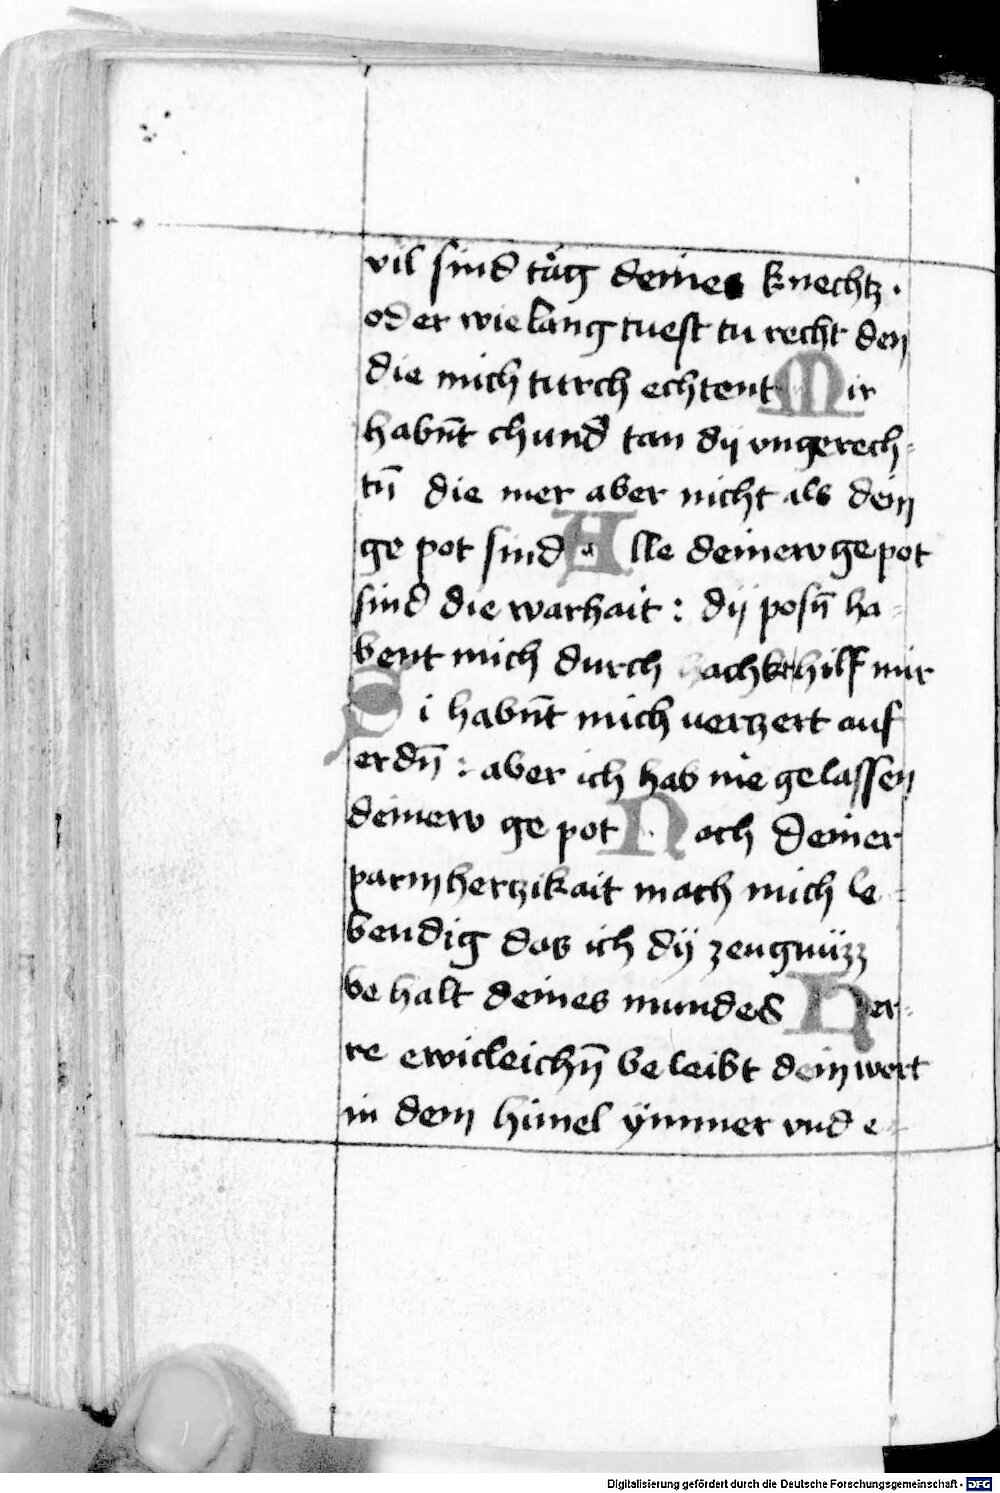 vil sind täg deines knechtz ·
oder wie lang tuest tu recht den
die mich turch echtent Mir
habn̄t chund tan dij vngerech-
tn̄ die mer aber nicht als dein
ge pot sind Alle deinew gepot
sind die warhait : dij posn̄ ha-
bent mich durch hilf mir
Si habn̄t mich uerczert auf
erdn̄ : aber ich hab nie gelassen
deinew ge pot Noch deiner
parmherczikait mach mich le-
bendig das ich dÿ zeugnüzz
be halt deines mundes Her-
re ewicleichn̄ be leibt dein wort
in dem himel ÿmmer vnd e
Digitalisierung gefördert durch die Deutsche Forschungsgemeinschaft - DFG